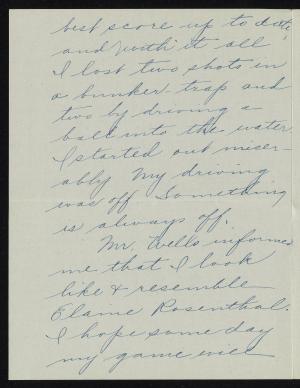 best score up to date,
and with it all
I lost two shots in
a bunker trap and
two by driving a
ball into the water.
I started out miser-
ably My driving
was off. Something
is always off.
Mr. Wells informed
me that I look
like & resemble
Elaine Rosenthal.
I hope some day
my game will